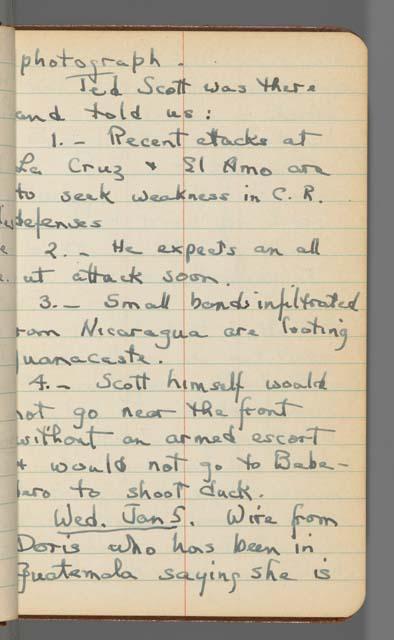 photograph.
Ted Scott was there
and told us:
1.- Recent attacks at
La Cruz & El Amo are
to seek weakness in C. R.
defenses
2.- He expects an all
ut attack soon.
3.- Small bands infiltrated
rom Nicaragua are looting
uanacaste.
4.- Scott himself would
not go near the front
without an armed escort
& would not go to Bebe-
ero to shoot duck.
Wed. Jan 5. Wire from
Doris who has been in
Guatemala saying she is